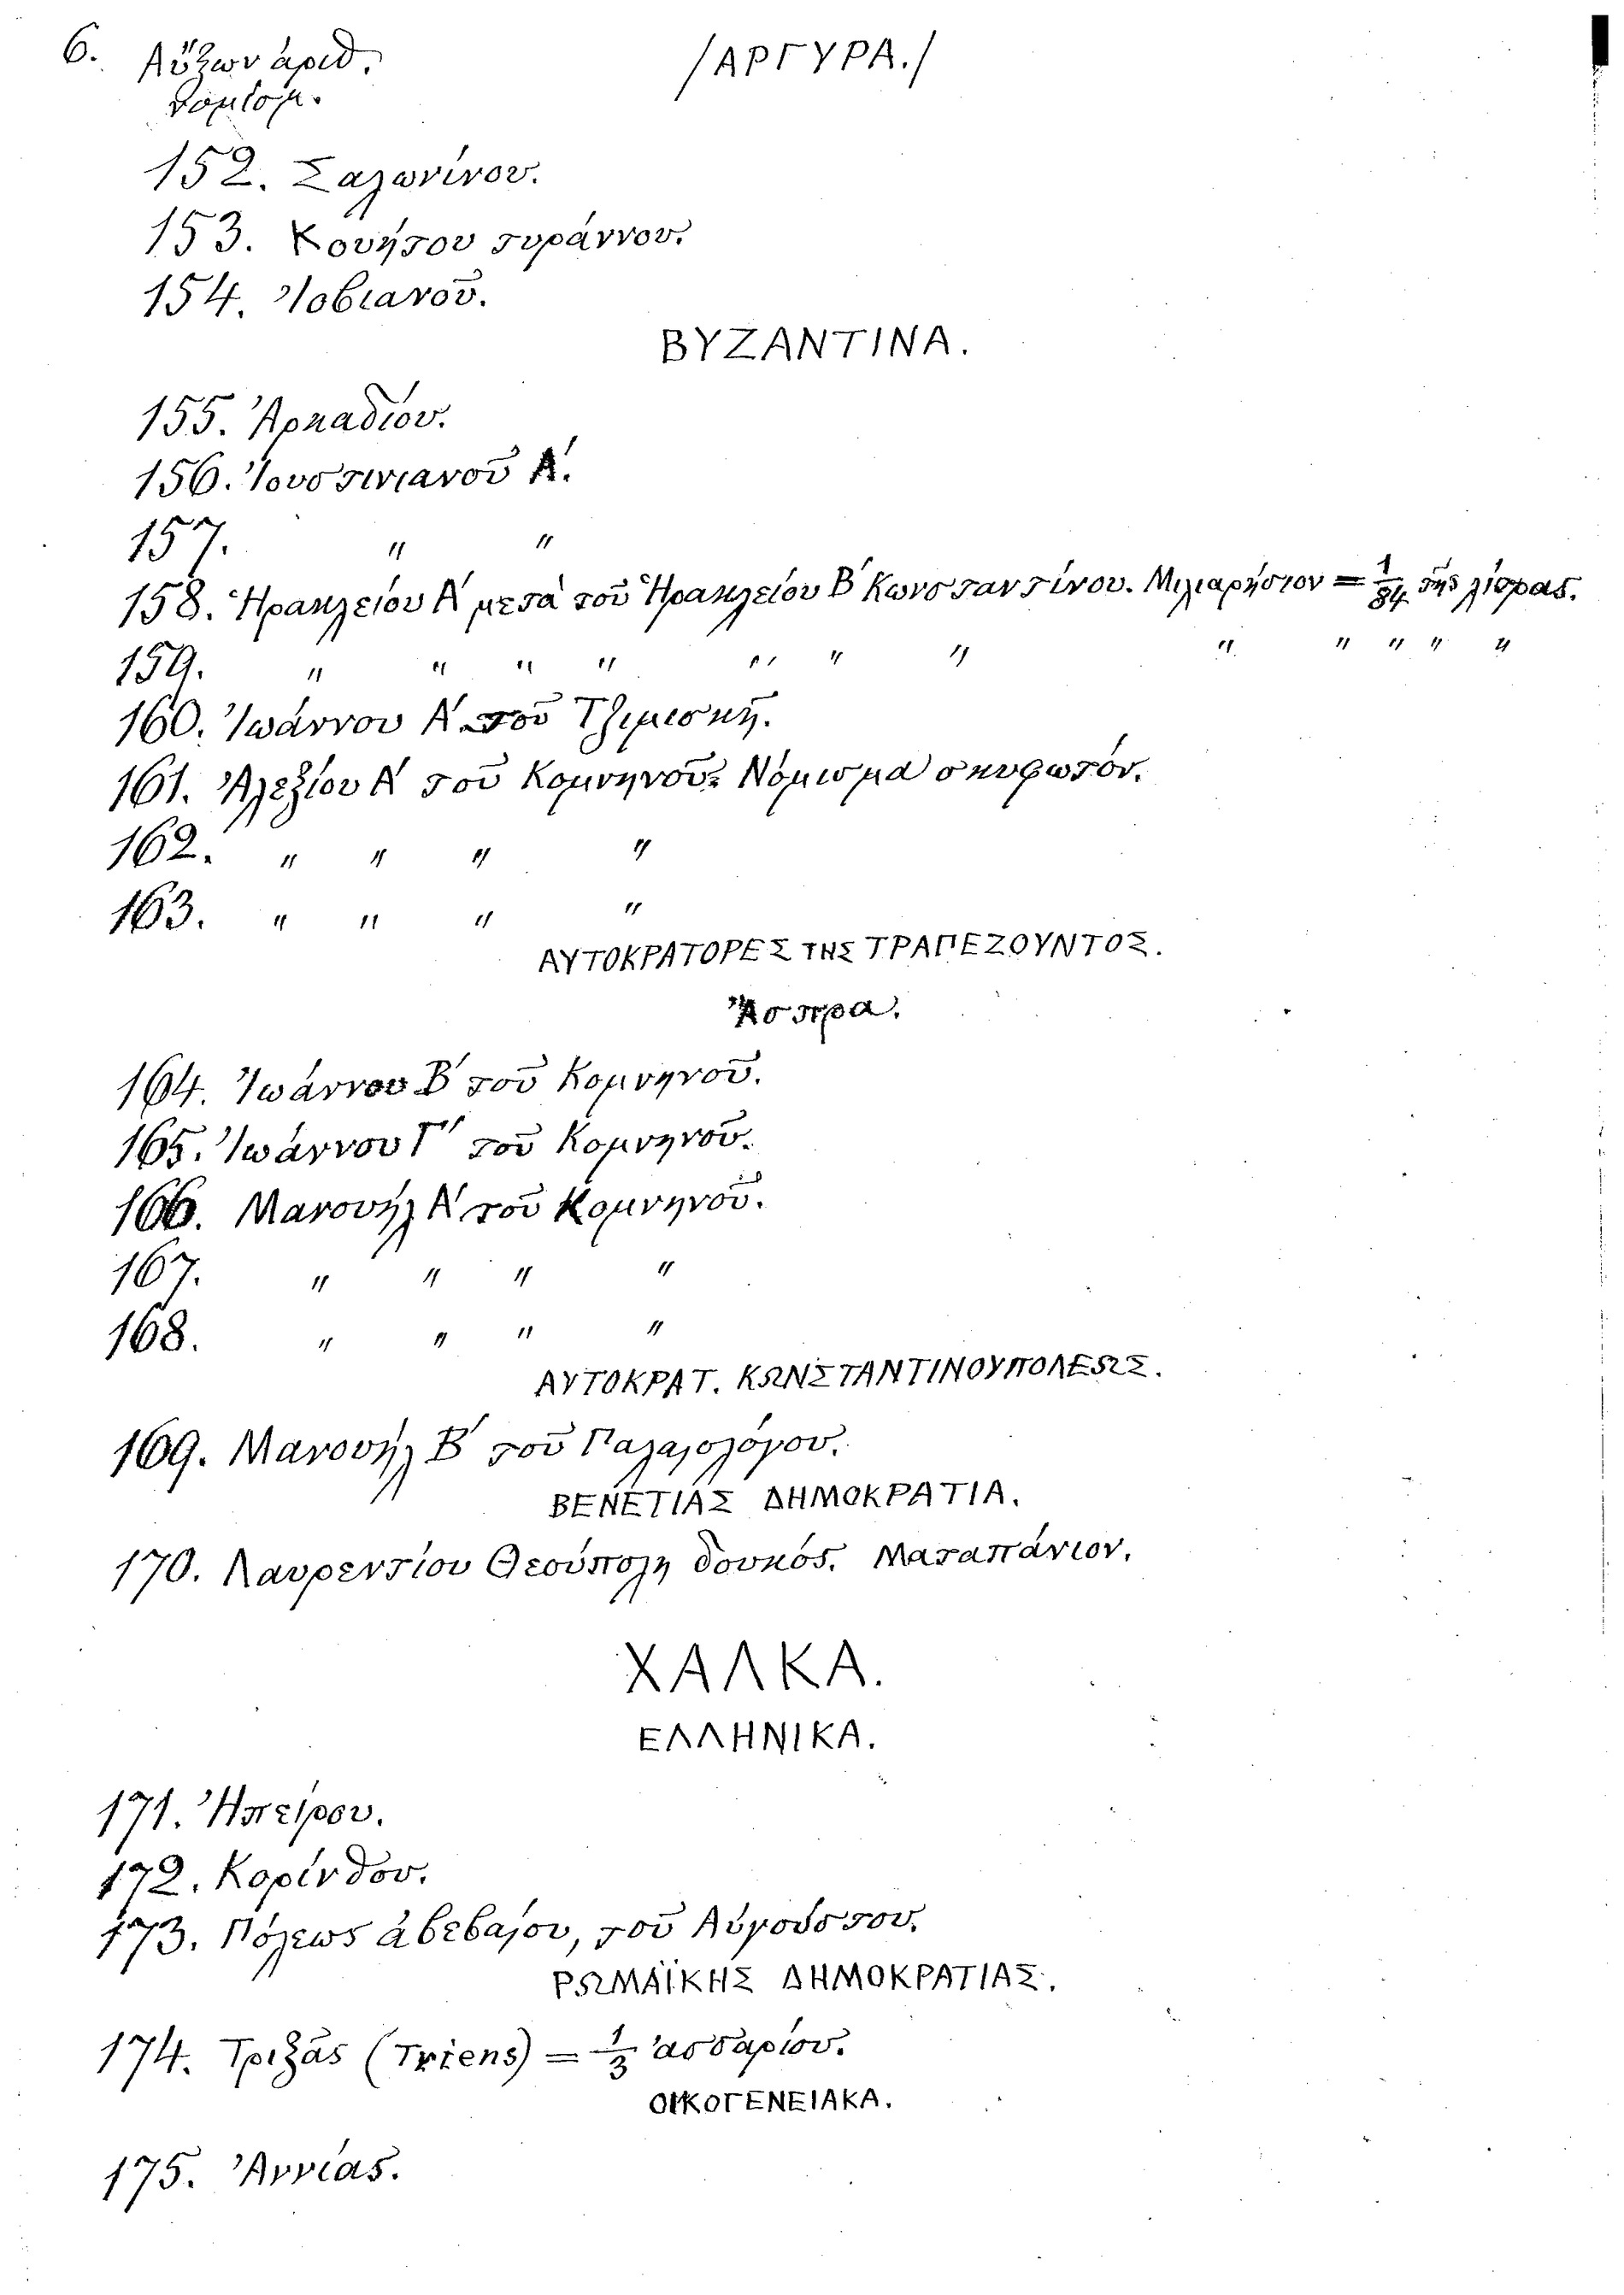 6. Αὔξων ἀριθ. /ΑΡΓΥΡΑ./
νομίσμ.
152. Σαλωνίνου.
153. Κουήτου τυράννου.
154. Ἰοβιανοῦ.
ΒΥΖΑΝΤΙΝΑ.
155. Ἀρκαδίου.
156. Ἰουστινιανοῦ Α΄.
157. " "
158. Ἡρακλείου Α΄ μετὰ τοῦ Ἡρακλείου Β΄ Κωνσταντίνου. Μιλιαρήσιον = 1/84 τῆς λίτρας.
159. " " " " " " " " " " " "
160. Ἰωάννου Α΄. τοῦ Τζιμισκῆ.
161. Ἀλεξίου Α΄ τοῦ Κομνηνοῦ. Νόμισμα σκυφωτόν.
162. " " " "
163. " " " "
ΑΥΤΟΚΡΑΤΟΡΕΣ ΤΗΣ ΤΡΑΠΕΖΟΥΝΤΟΣ.
Ἄσπρα.
164. Ἰωάννου Β΄ τοῦ Κομνηνοῦ.
165. Ἰωάννου Γ΄ τοῦ Κομνηνοῦ.
166. Μανουήλ Α΄ τοῦ Κομνηνοῦ.
167. " " " "
168. " " " "
ΑΥΤΟΚΡΑΤ. ΚΩΝΣΤΑΝΤΙΝΟΥΠΟΛΕΩΣ.
169. Μανουήλ Β΄ τοῦ Παλαιολόγου.
ΒΕΝΕΤΙΑΣ ΔΗΜΟΚΡΑΤΙΑ.
170. Λαυρεντίου Θεούπολη δουκός. Ματαπάνιον.
ΧΑΛΚΑ.
ΕΛΛΗΝΙΚΑ.
171. Ἠπείρου.
172. Κορίνθου.
173. Πόλεως ἀβεβαίου, τοῦ Αὐγούστου.
ΡΩΜΑΪΚΗΣ ΔΗΜΟΚΡΑΤΙΑΣ.
174. Τριξᾶς (Triens) = 1/3 ἀσσαρίου.
ΟΙΚΟΓΕΝΕΙΑΚΑ.
175. Ἀννίας.